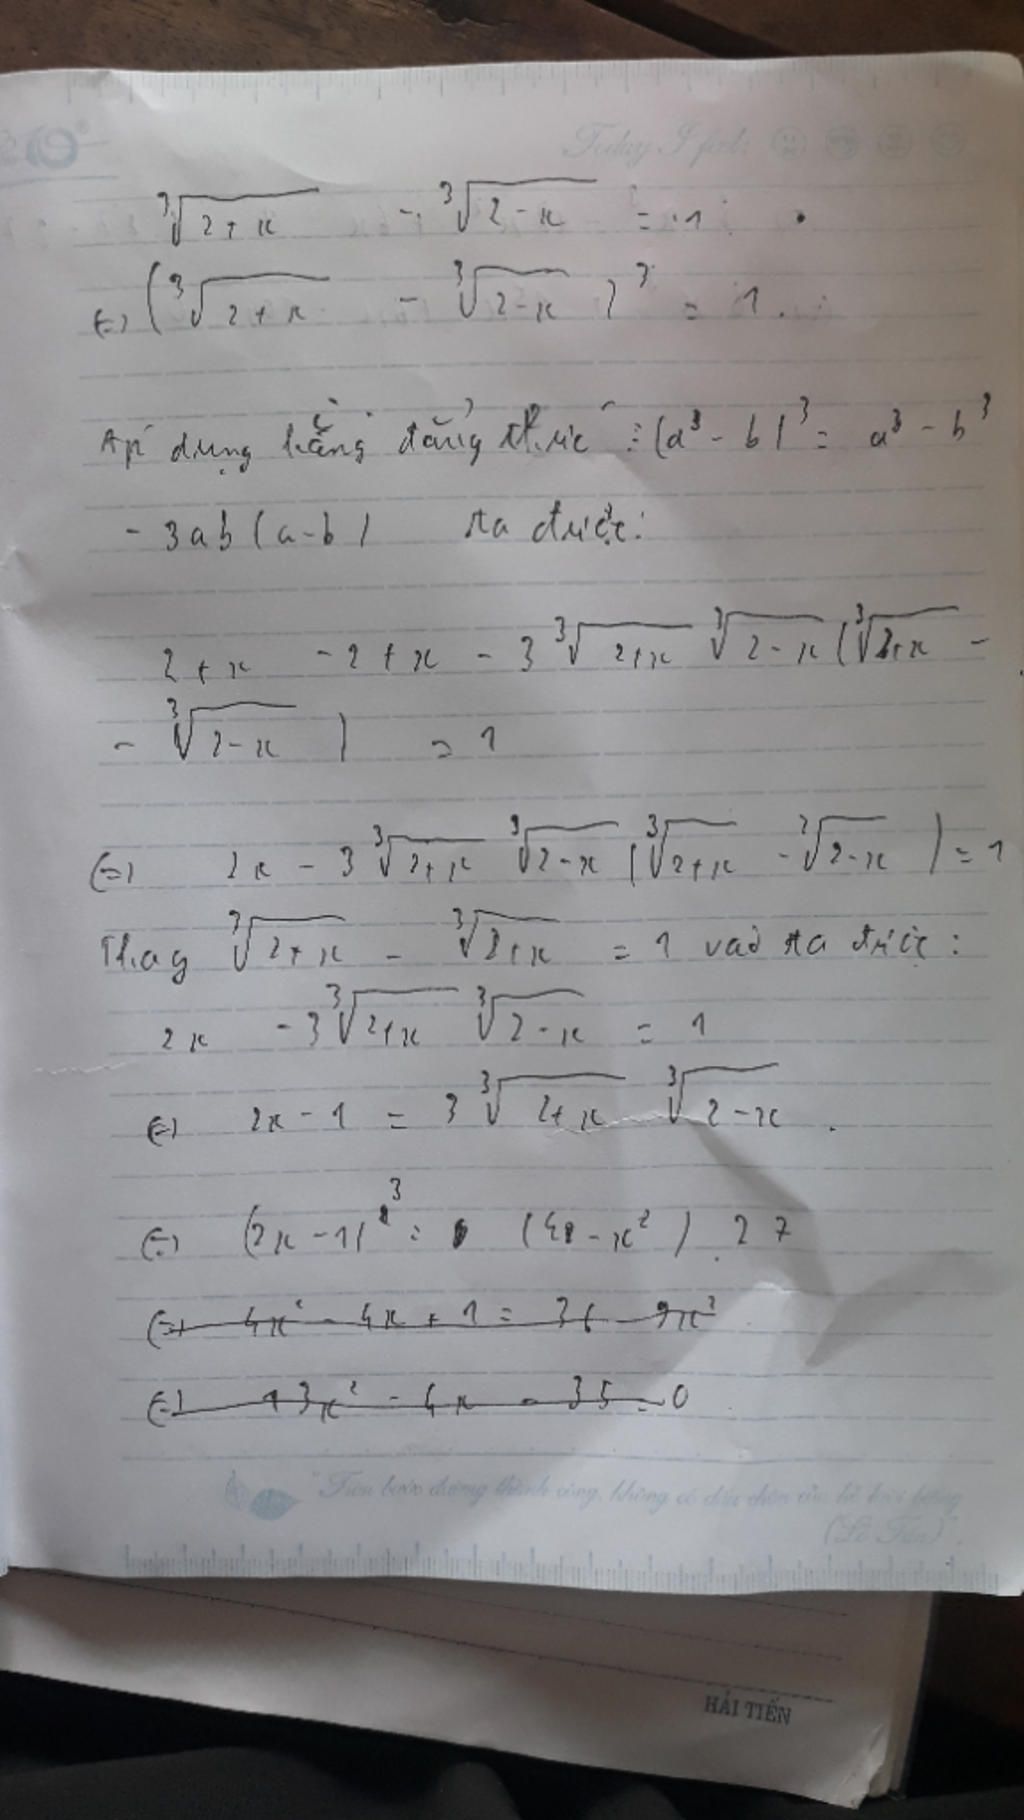 Today I feel:
∛(2+x) - ∛(2-x) = 1
(=) (∛(2+x) - ∛(2-x))³ = 1.
Áp dụng hằng đẳng thức : (a³ - b)³ = a³ - b³
- 3ab(a-b) ta được:
2+x -2+x - 3 ∛(2+x) ∛(2-x) (∛(2+x) -
- ∛(2-x) ) = 1
(=) 2x - 3 ∛(2+x) ∛(2-x) (∛(2+x) - ∛(2-x) ) = 1
Thay ∛(2+x) - ∛(2+x) = 1 vào ta được:
2x - 3 ∛(2+x) ∛(2-x) = 1
(=) 2x - 1 = 3 ∛(2+x) ∛(2-x).
(=) (2x - 1)³ = (4 - x²) . 27
(=) 4x² - 4x + 1 = 36 - 9x²
(=) 13x² - 4x - 35 = 0
"Trên bước đường thành công, không có dấu chân của kẻ lười biếng
(Lỗ Tấn)".
HẢI TIẾN